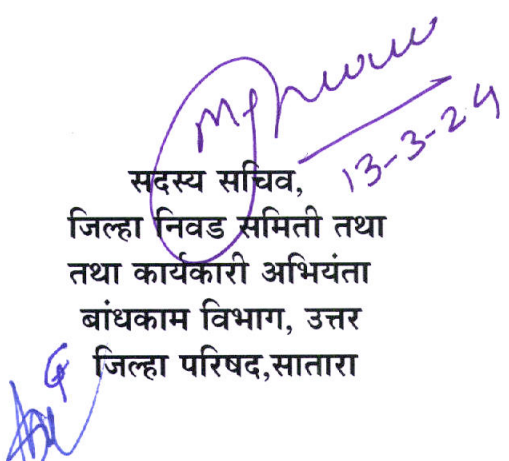 13-3-24
सदस्य सचिव,
जिल्हा निवड समिती तथा
तथा कार्यकारी अभियंता
बांधकाम विभाग, उत्तर
जिल्हा परिषद,सातारा